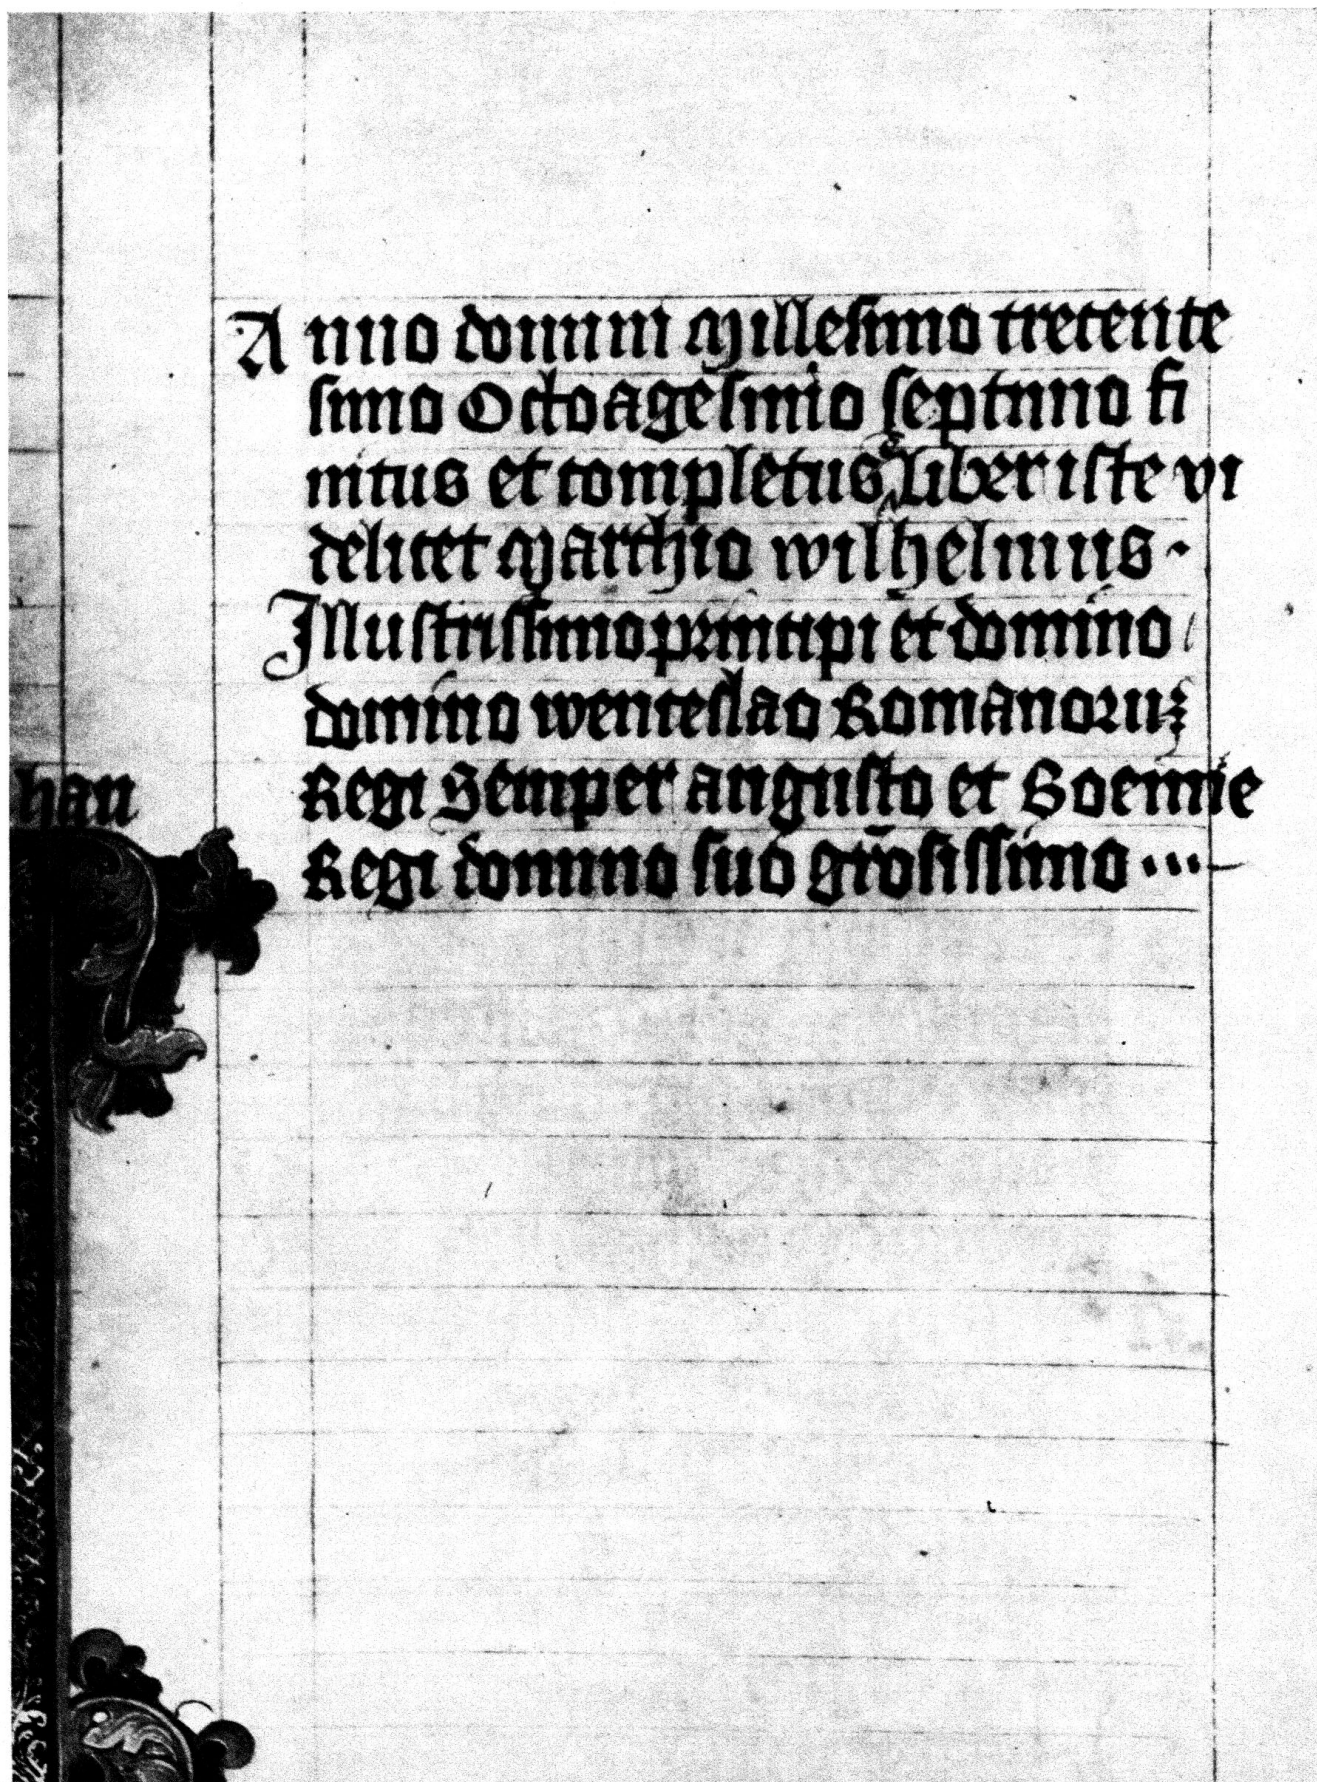 Anno domini Millesimo trecente
simo Octoagesimo septimo fi
nitus et completus e liber iste vi
delicet Marchio wilhelmus ·
Illustrissimo principi et domino
domino wenceslao Romanoruꝫ
han
Regi Semper augusto et Boemie
Regi domino suo gr̄osissimo ...